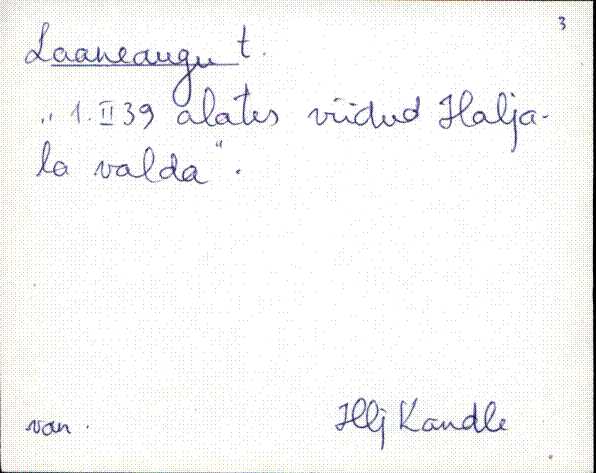 3
Laaneaugu t.
„1. II 39 alates viidud Halja-
la valda".
van.
Hlj Kandle